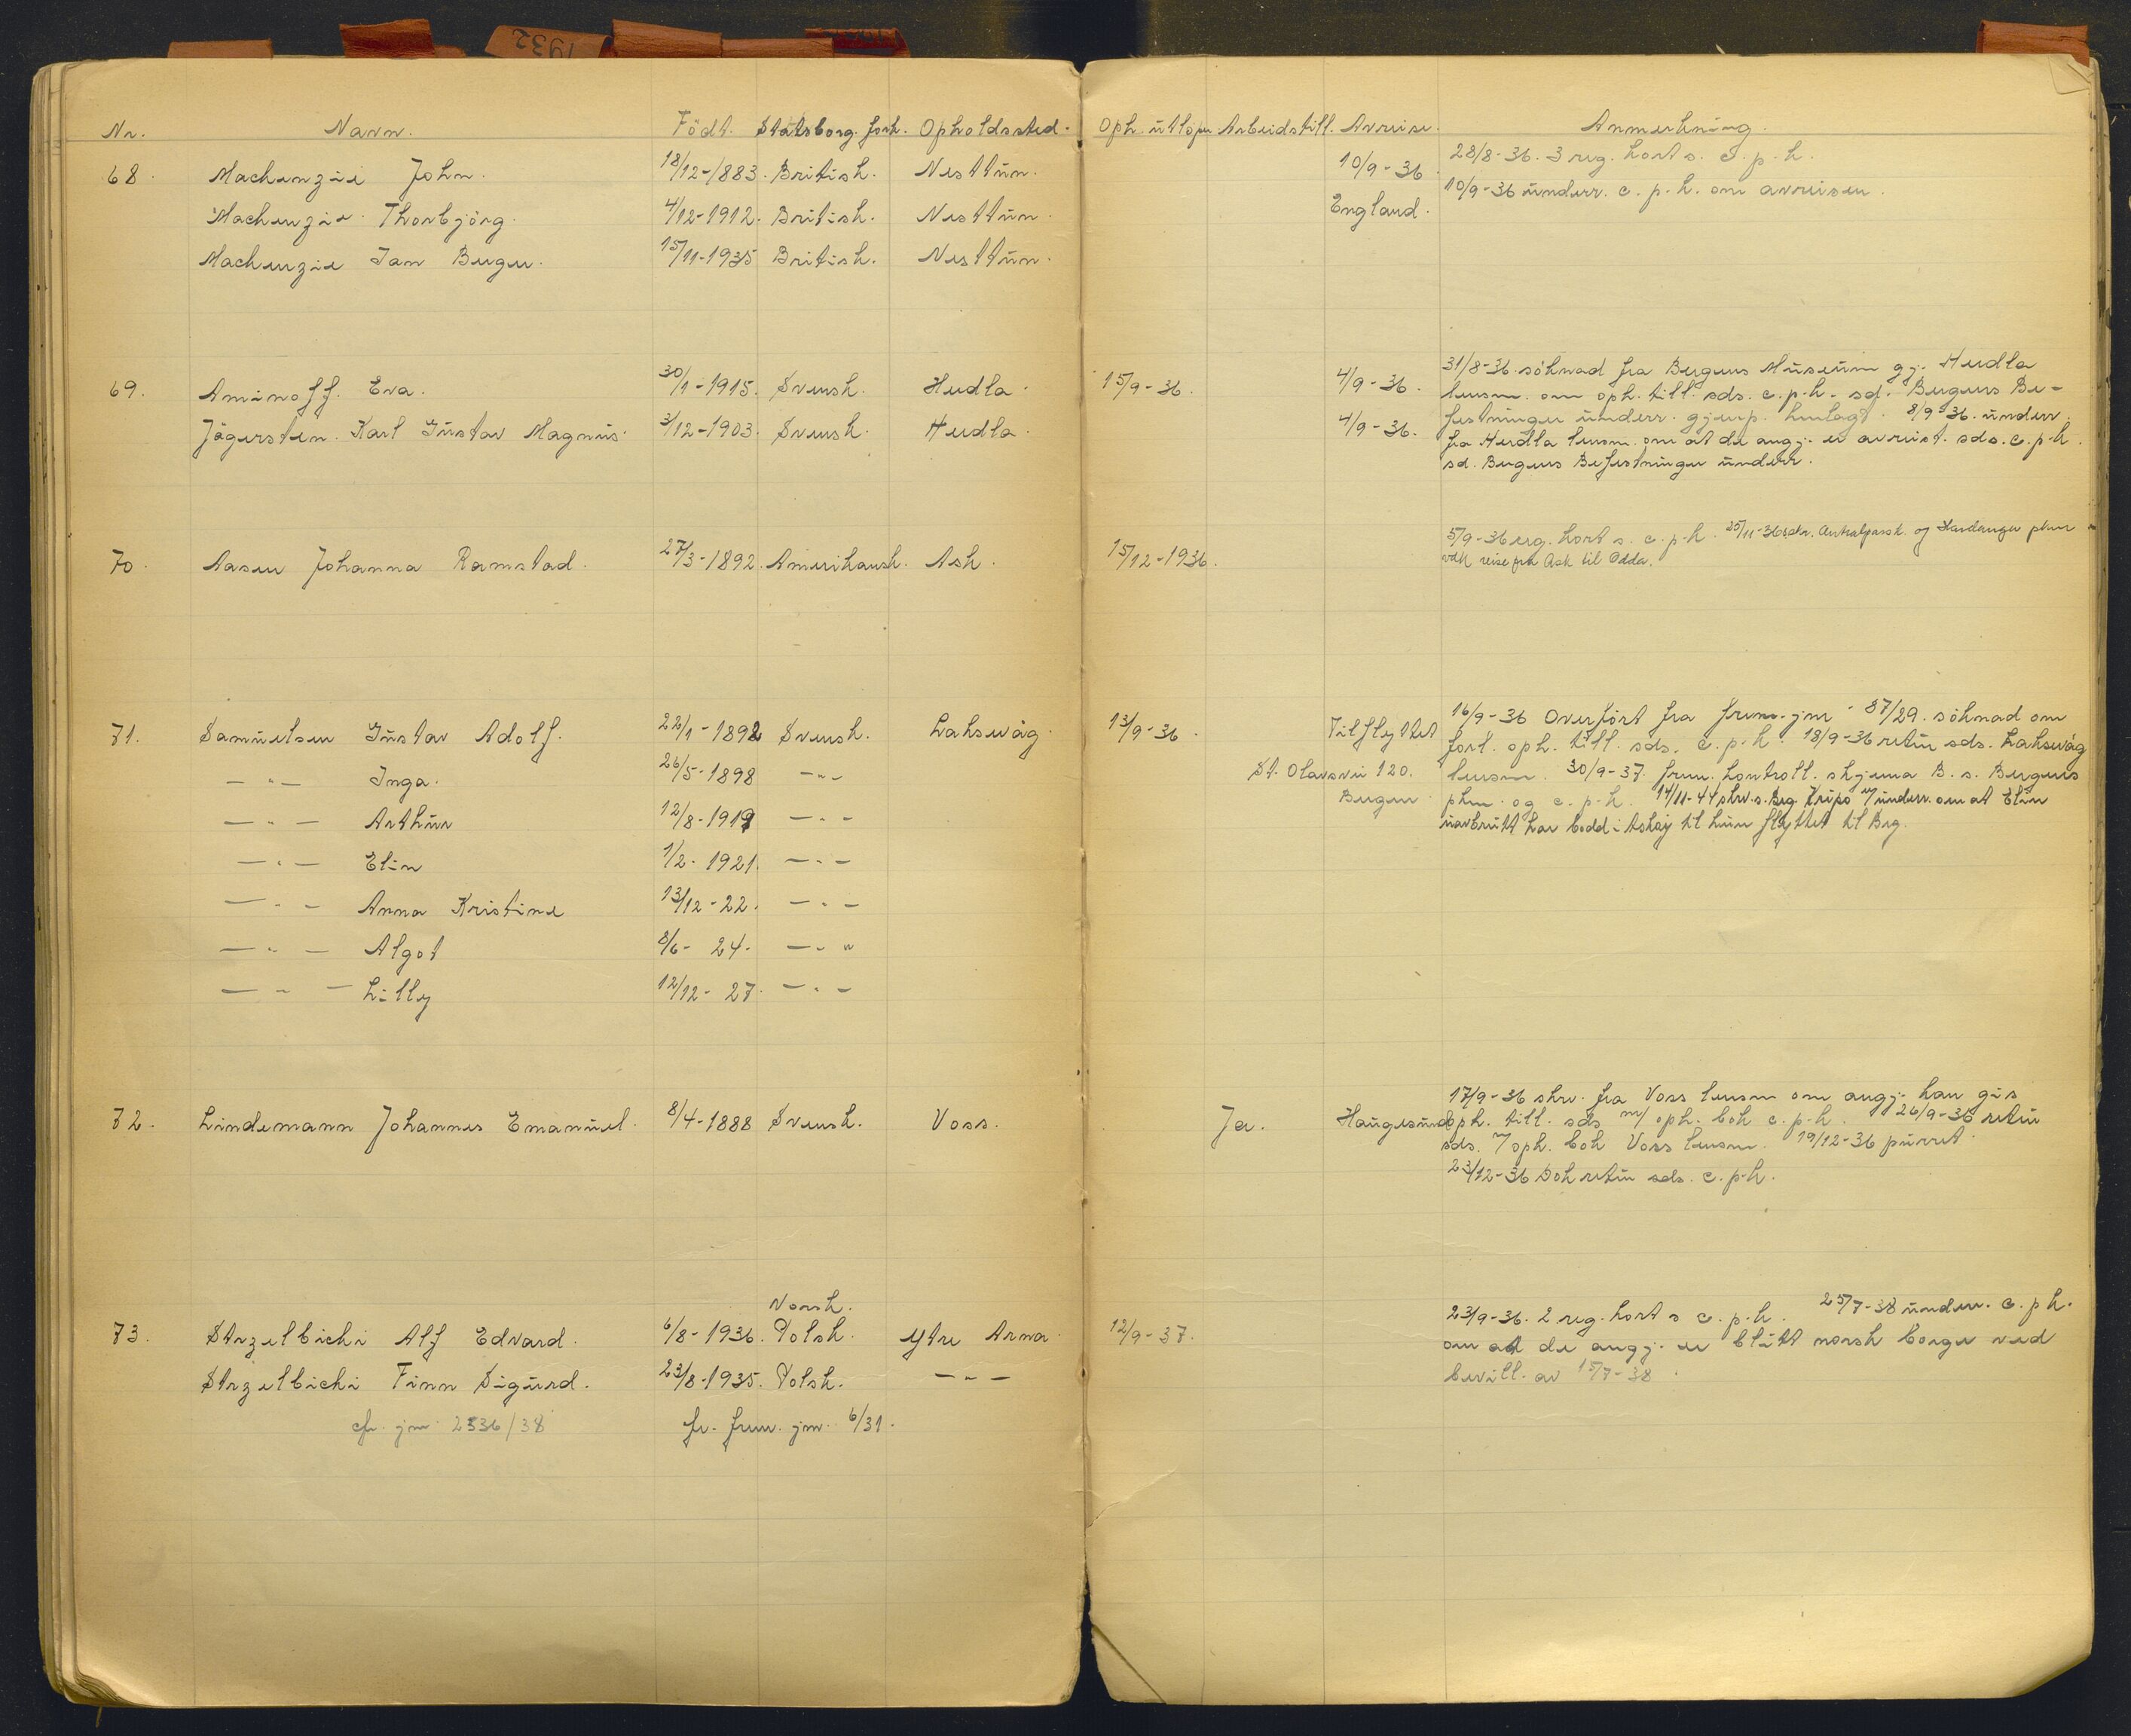 1932
Nr. Navn. Födt. Statsborg. forh. Opholdssted. Oph. utlöper Arbeidstill. Avreise. Anmerkning.
68. Mackenzie John. 18/12-1883. Britisk. Nesttun. 10/9-36. 28/8-36. 3 reg. kort s. c.p.k.
Mackenzie Thorbjörg. 4/12-1912. Britisk. Nesttun. England. 10/9-36 underr. c.p.k. om avreisen.
Mackenzie Ian Berger. 15/11-1935 Britisk. Nesttun.
69. Aminoff. Eva. 30/1-1915. Svensk. Herdla. 15/9-36. 4/9-36. 31/8-36. söknad fra Bergens Museum gj. Herdla
lensm. om oph. till. sds. c.p.k. sd. Bergens Be-
Jägersten. Karl Gustav Magnus. 3/12-1903. Svensk. Herdla. 4/9-36. festninger underr. gjenp. henlagt. 8/9-36. underr.
fra Herdla lensm. om at de angj. er avreist. sds. c.p.k.
sd. Bergens Befestninger underr.
70. Aasen Johanna Ramstad. 27/3-1892. Amerikansk. Ask. 15/12-1936. 5/9-36 reg. kort s. c.p.k. 25/11-36 skr. Centralpassk. og Hardanger pkm
vdk reise fra Ask til Odda.
71. Samuelsen Gustav Adolf. 22/1-1892 Svensk. Laksevåg. 13/9-36. Tilflyttet 16/9-36 Overfört fra frem. jnr. 87/29. söknad om
fort. oph. till. sds. c.p.k. 18/9-36 retur sds. Laksevåg
— " — Inga. 26/5-1898 — " — St. Olavsvei 120. lensm. 30/9-37. frem. kontroll. skjema B. s. Bergens
Bergen. pkm. og c.p.k. 14/11-44 skrv. s. Brg. Kripo m/ underr. om at Elin
— " — Arthur 12/8-1919 — " — uavbrutt har bodd i Askøy til hun flyttet til Brg.
— " — Elin 1/2-1921. — " —
— " — Anna Kristine 13/12-22. — " —
— " — Algot 8/6-24. — " —
— " — Lilly 12/12-27. — " —
72. Lindemann Johannes Emanuel. 8/4-1888 Svensk. Voss. Ja. Haugesund 17/9-36 skrv. fra Voss lensm om angj. kan gis
oph. till. sds m/ oph. bok c.p.k. 26/9-36 retur
sds. m/ oph. bok Voss lensm. 19/12-36 purret.
23/12-36 Dok retur sds. c.p.k.
Norsk.
73. Strzelbicki Alf Edvard. 6/8-1936. Polsk. Ytre Arna. 12/9-37. 23/9-36. 2 reg. kort s c.p.k. 25/7-38 underr. c.p.k.
om at de angj. er blitt norsk borger ved
Strzelbicki Finn Sigurd. 23/8-1935. Polsk. — " — bevill. av 15/7-38.
cfr. jnr. 2536/38 fr. frem. jnr. 6/31.